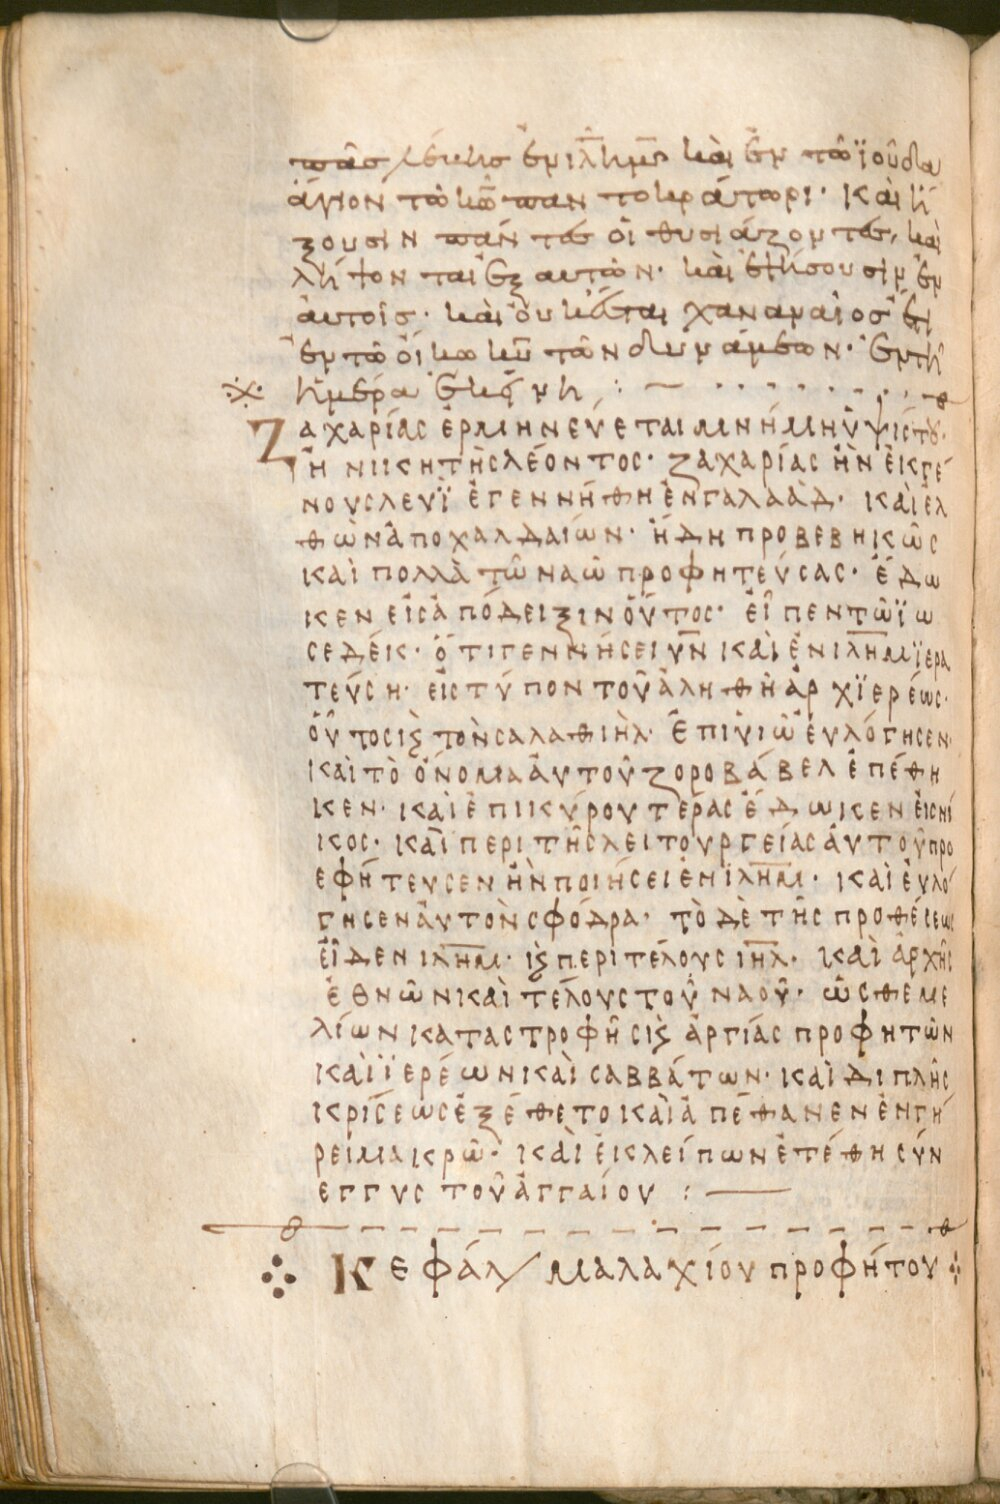 πᾶσ λέβησ ἐν ιλ̅η̅μ̅ καὶ ἐν τῶ ϊούδα
ἅγιον τῶ κω̅ παντοκράτορι· Καὶ ἥ
ξουσιν πάντεσ οἱ θυσιάζοντεσ, καὶ
λήψονται ἐξ αυτῶν· καὶ ἑψήσουσιν ἐν
ἀυτοῖσ· καὶ ὀυκ έσται χαναναῖοσ ἔτι
ἐν τῶ όίκω κυ̅ τῶν δυνάμεων· Ἐν τῆ
ἡμέρα ἐκείνη :
Ζαχαρίας ἑρμηνεύεται μνήμη ὑψίστου·
ἢ νικητὴς λέοντος· ζαχαρίας ἦν ἐκ γέ
νους λευῒ ἐγεννήθη ἐν γαλαὰδ· καὶ ἐλ
θὼν ἀπο χαλδαίων· ἤδη προβεβηκὼς
καὶ πολλὰ τῶ ναῶ προφητεύσας· ἔδω
κεν εἰς ἀπόδειξιν οὗτος· εἶπεν τῶ ϊω
σεδέκ· ὅτι γεννήσει υν̅ καὶ ἐν ιλ̅η̅μ̅ ϊερα
τεύση· εἰς τύπον τοῦ ἀληθῆ ἀρχϊερέως·
οὗτος κ(αὶ) τὸν σαλαθιὴλ· Ἐπι ὑιῶ ἐυλόγησεν·
καὶ τὸ ὄνομα ἀυτοῦ ζοροβάβελ ἐπέθη
κεν· καὶ ἐπι κύρου τέρας ἔδωκεν εἰς νί
κος· καὶ περι τῆς λειτουργείας ἀυτοῦ προ
εφήτευσεν ἣν ποιήσει ἐν ϊλ̅η̅μ̅· καὶ ἐυλό
γησεν ἀυτὸν σφόδρα· τὸ δὲ τῆς προθέσεως
εἶδεν ιλ̅η̅μ̅· κ(αὶ) περι τέλους ιη̅λ̅· καὶ ἀρχῆς
ἐθνῶν καὶ τέλους τοῦ ναοῦ· ὡς θεμε
λίων καταστροφῆς κ(αὶ) ἀργίας προφητῶν
καὶ ϊερέων καὶ σαββάτων· καὶ διπλῆς
κρίσεως ἐξέθετο καὶ ἀπέθανεν ἐν γή
ρει μακρῶ· καὶ ἐκλείπων ἐτέθη σύν
εγγυς τοῦ ἀγγαίου :
Κεφάλ/ μαλαχίου προφήτου